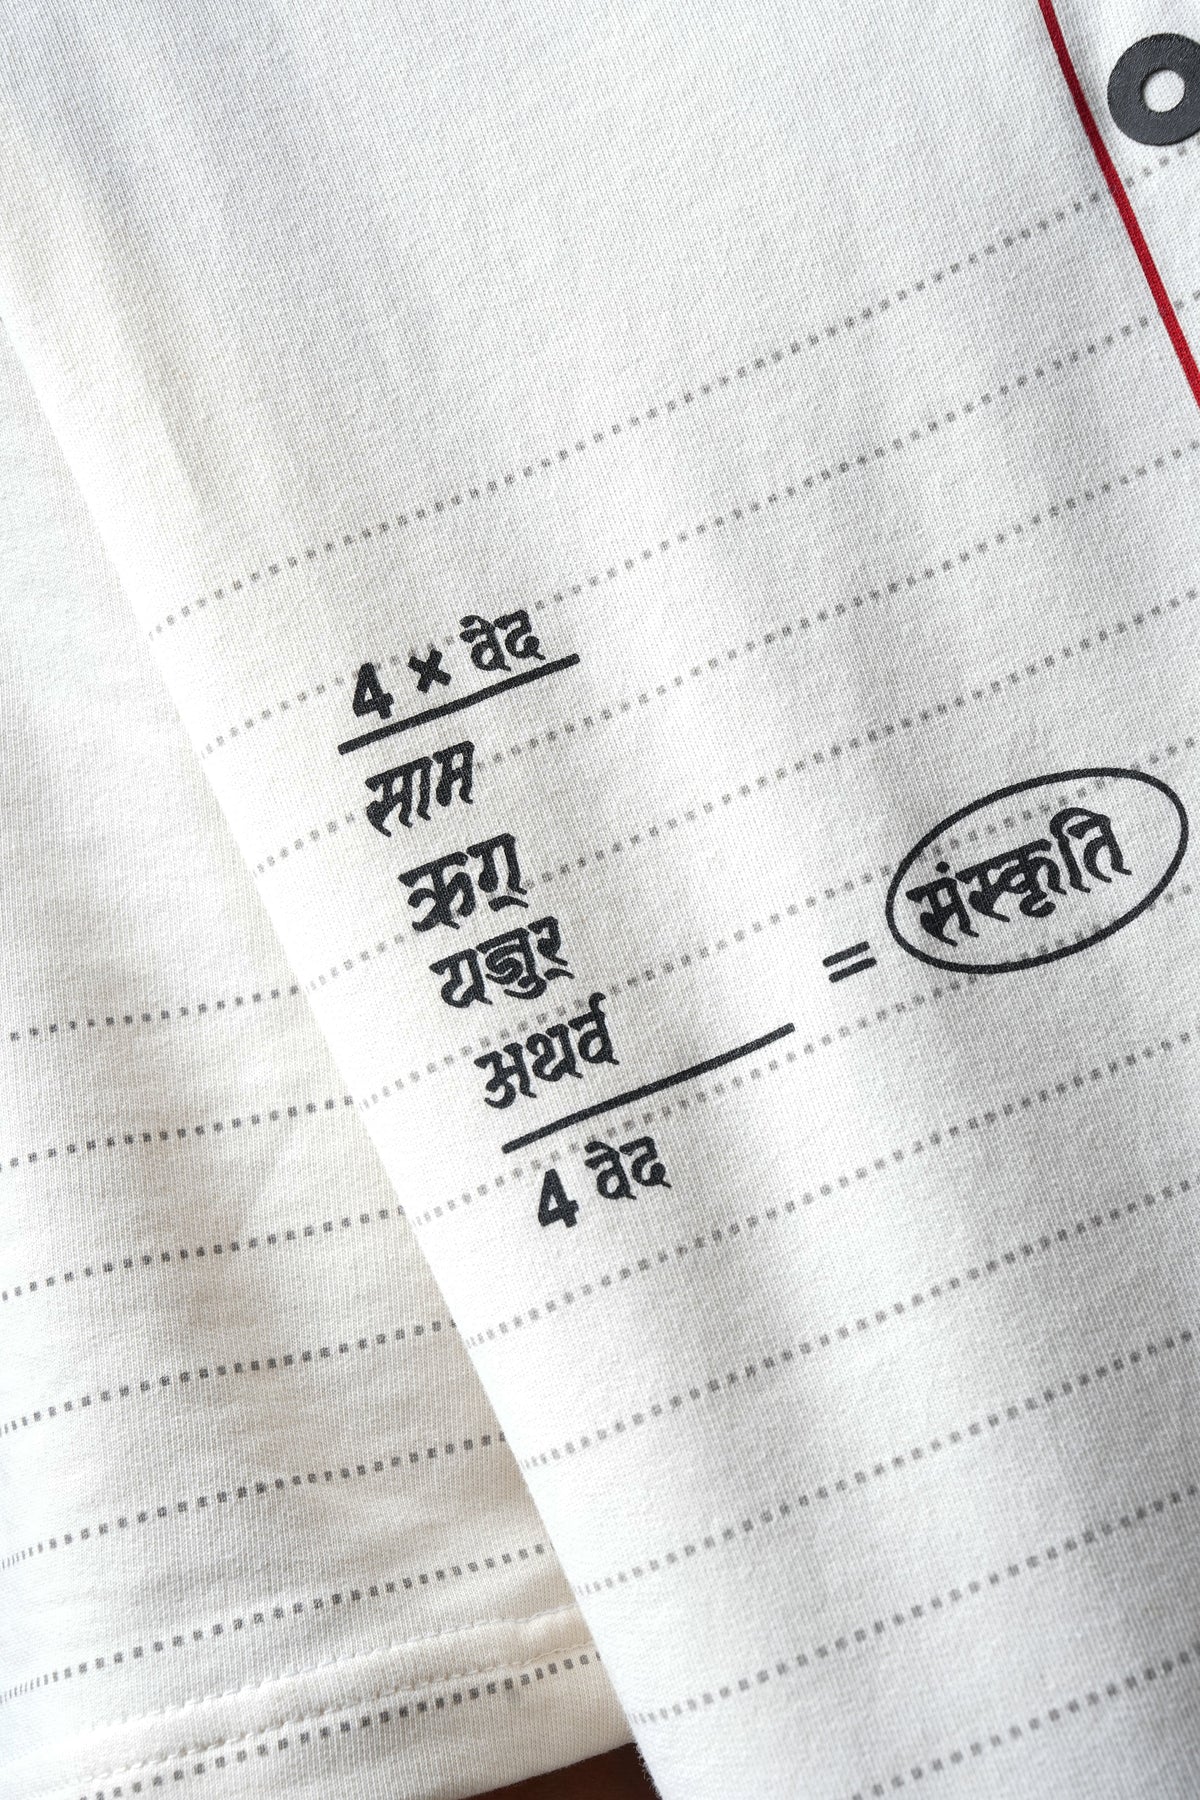 4 × वेद
साम
ऋग्
यजुर्
अथर्व
= संस्कृति
4 वेद